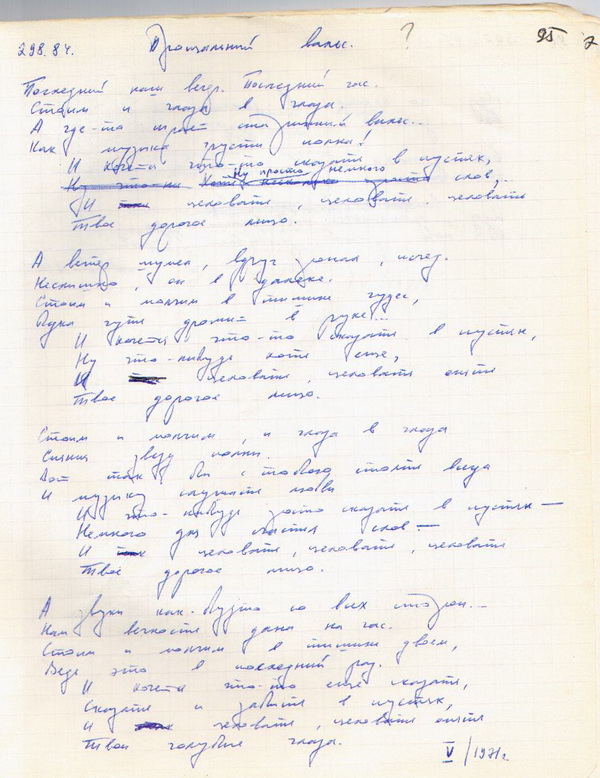 298.84. Прощальный вальс. ? 95 7
Последний наш вечер. Последний час.
Стоим и глаза в глаза.
А где-то играет старинный вальс...
Как музыка грусти полна!
И хочется что-то сказать в пустяк,
Ну просто немного слов,..
И целовать, целовать, целовать
Твоё дорогое лицо.
А ветер шумел, вдруг исчез.
Неслышно, он в далеке.
Стоим и молчим в тишине чудес,
Рука чуть дрожит в руке!...
И хочется что-то сказать в пустяк,
Ну что-нибудь хоть ещё,
И целовать, целовать опять
Твоё дорогое лицо.
Стоим и молчим, и глаза в глаза
Сияния звёзд полны.
Вот так бы с тобою стоять всегда
И музыку слушать любви
И что-нибудь просто сказать в пустяк —
Немного для счастья слов —
И целовать, целовать, целовать
Твоё дорогое лицо.
А звуки как-будто со всех сторон...
Нам вечность дана на час.
Стоим и молчим в тишине вдвоем,
Ведь это в последний раз.
И хочется что-то ещё сказать,
Сказать и забыть в пустяк,
И целовать, целовать опять
Твои голубые глаза.
V/1971г.